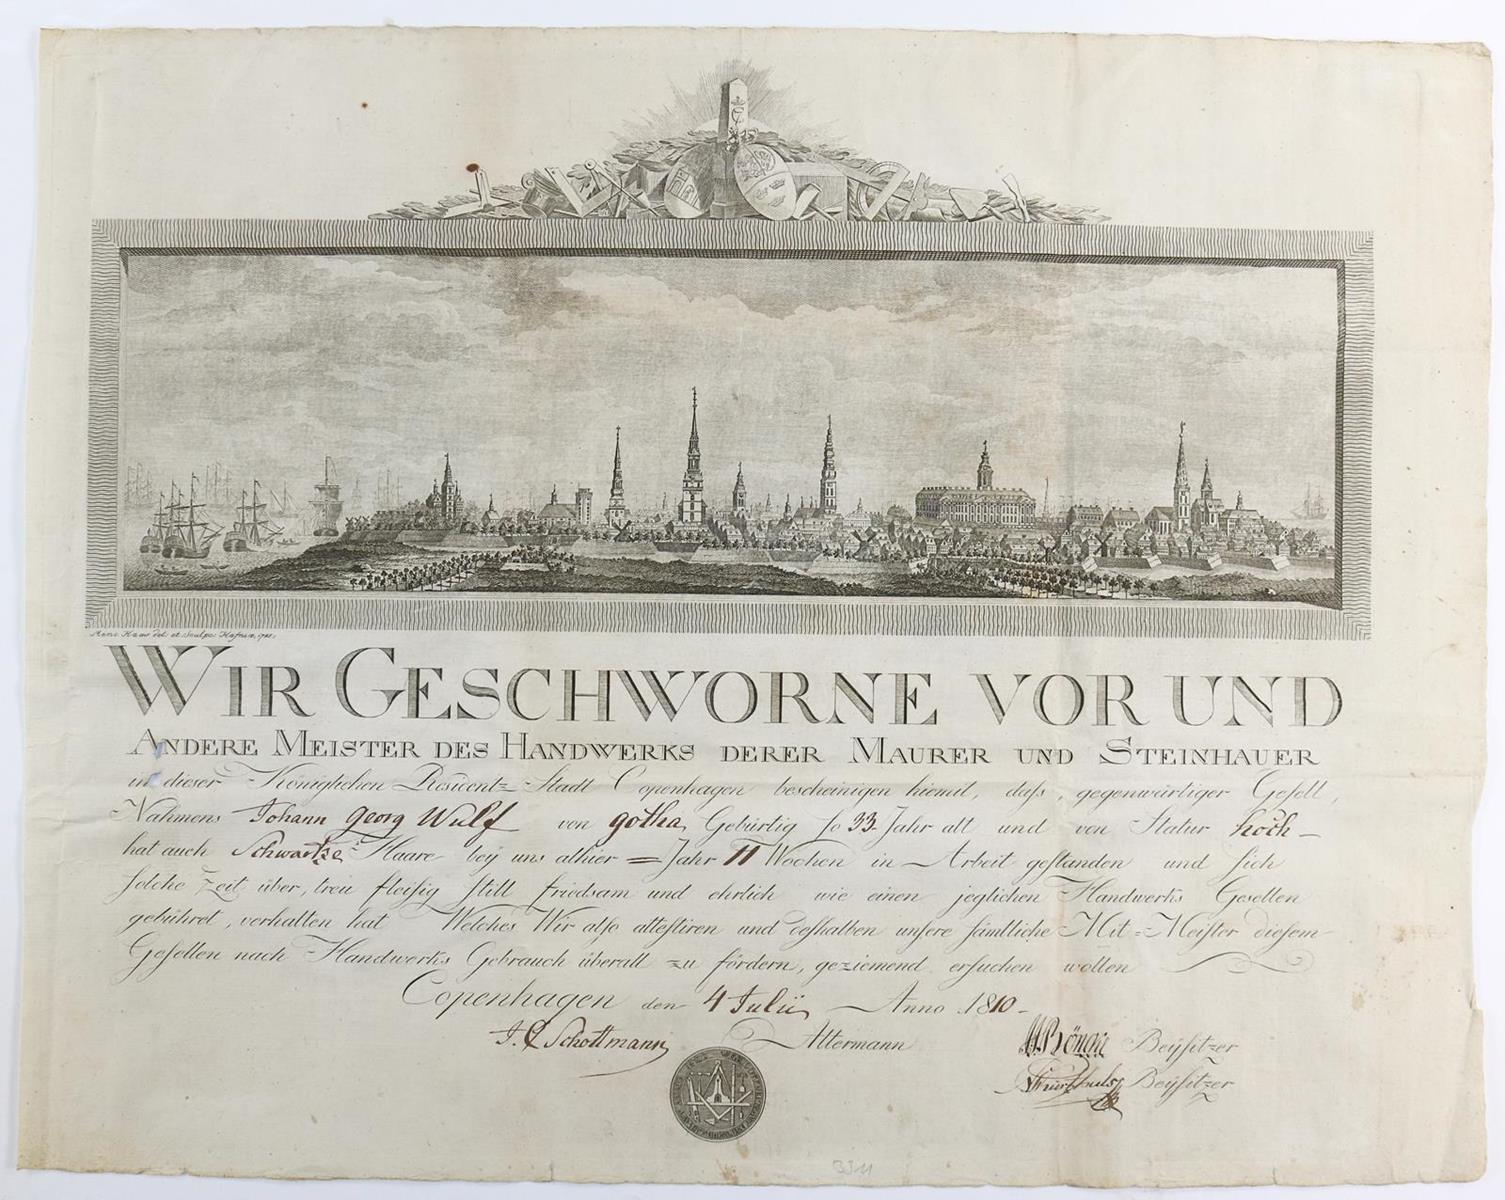 C7
Meno Haas del. et Sculps. Hafniæ,
WIR GESCHWORNE VOR UND
ANDERE MEISTER DES HANDWERKS DERER MAURER UND STEINHAUER
in dieser Königlichen Residentz-Stadt Copenhagen bescheinigen hiemit, daſs, gegenwärtiger Geſell,
Nahmens Johann Georg Wulf von gotha, Gebürtig ſo 33 Jahr alt und von Statur hoch
hat auch Schwartze Haare bey uns alhier = Jahr 11 Wochen in Arbeit geſtanden und ſich
ſolche Zeit über, treu fleiſsig ſtill friedsam und ehrlich wie einen jeglichen Handwerks Gesellen
gebühret, verhalten hat Welches Wir alſo atteſtiren und deſhalben unſere ſämtliche Mit-Meiſter diesem
Geſellen nach Handwerks Gebrauch überall zu fördern, geziemend ersuchen wollen
Copenhagen den 4 Julii Anno 1810
J. C. Schottmann Altermann Beyſitzer
Beyſitzer